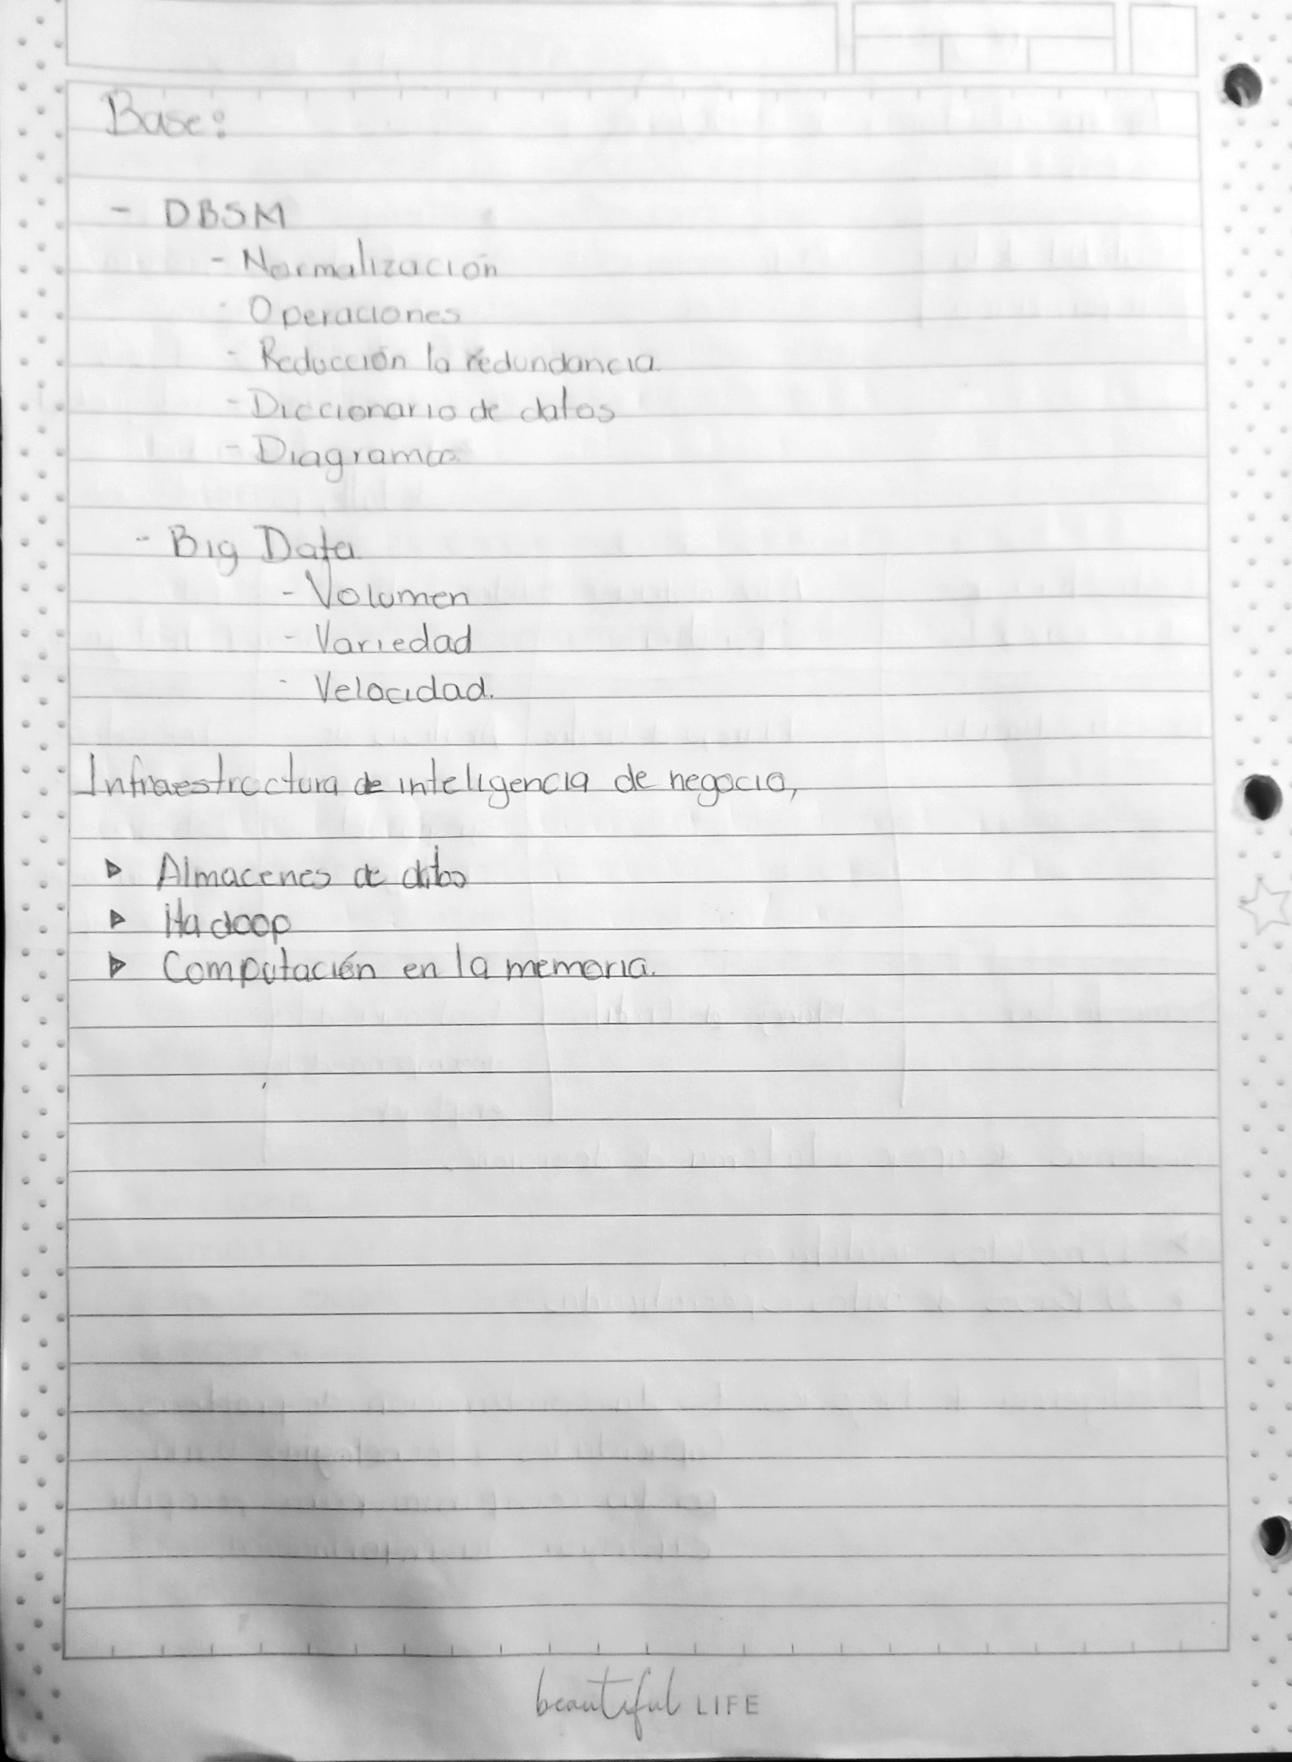 Base:
- DBSM
- Normalización
- Operaciones
- Reducción la redundancia
- Diccionario de datos
- Diagramas
- Big Data
- Volumen
- Variedad
- Velocidad.
Infraestructura de inteligencia de negocio,
▷ Almacenes de datos
▷ Hadoop
▷ Computación en la memoria.
beautiful LIFE